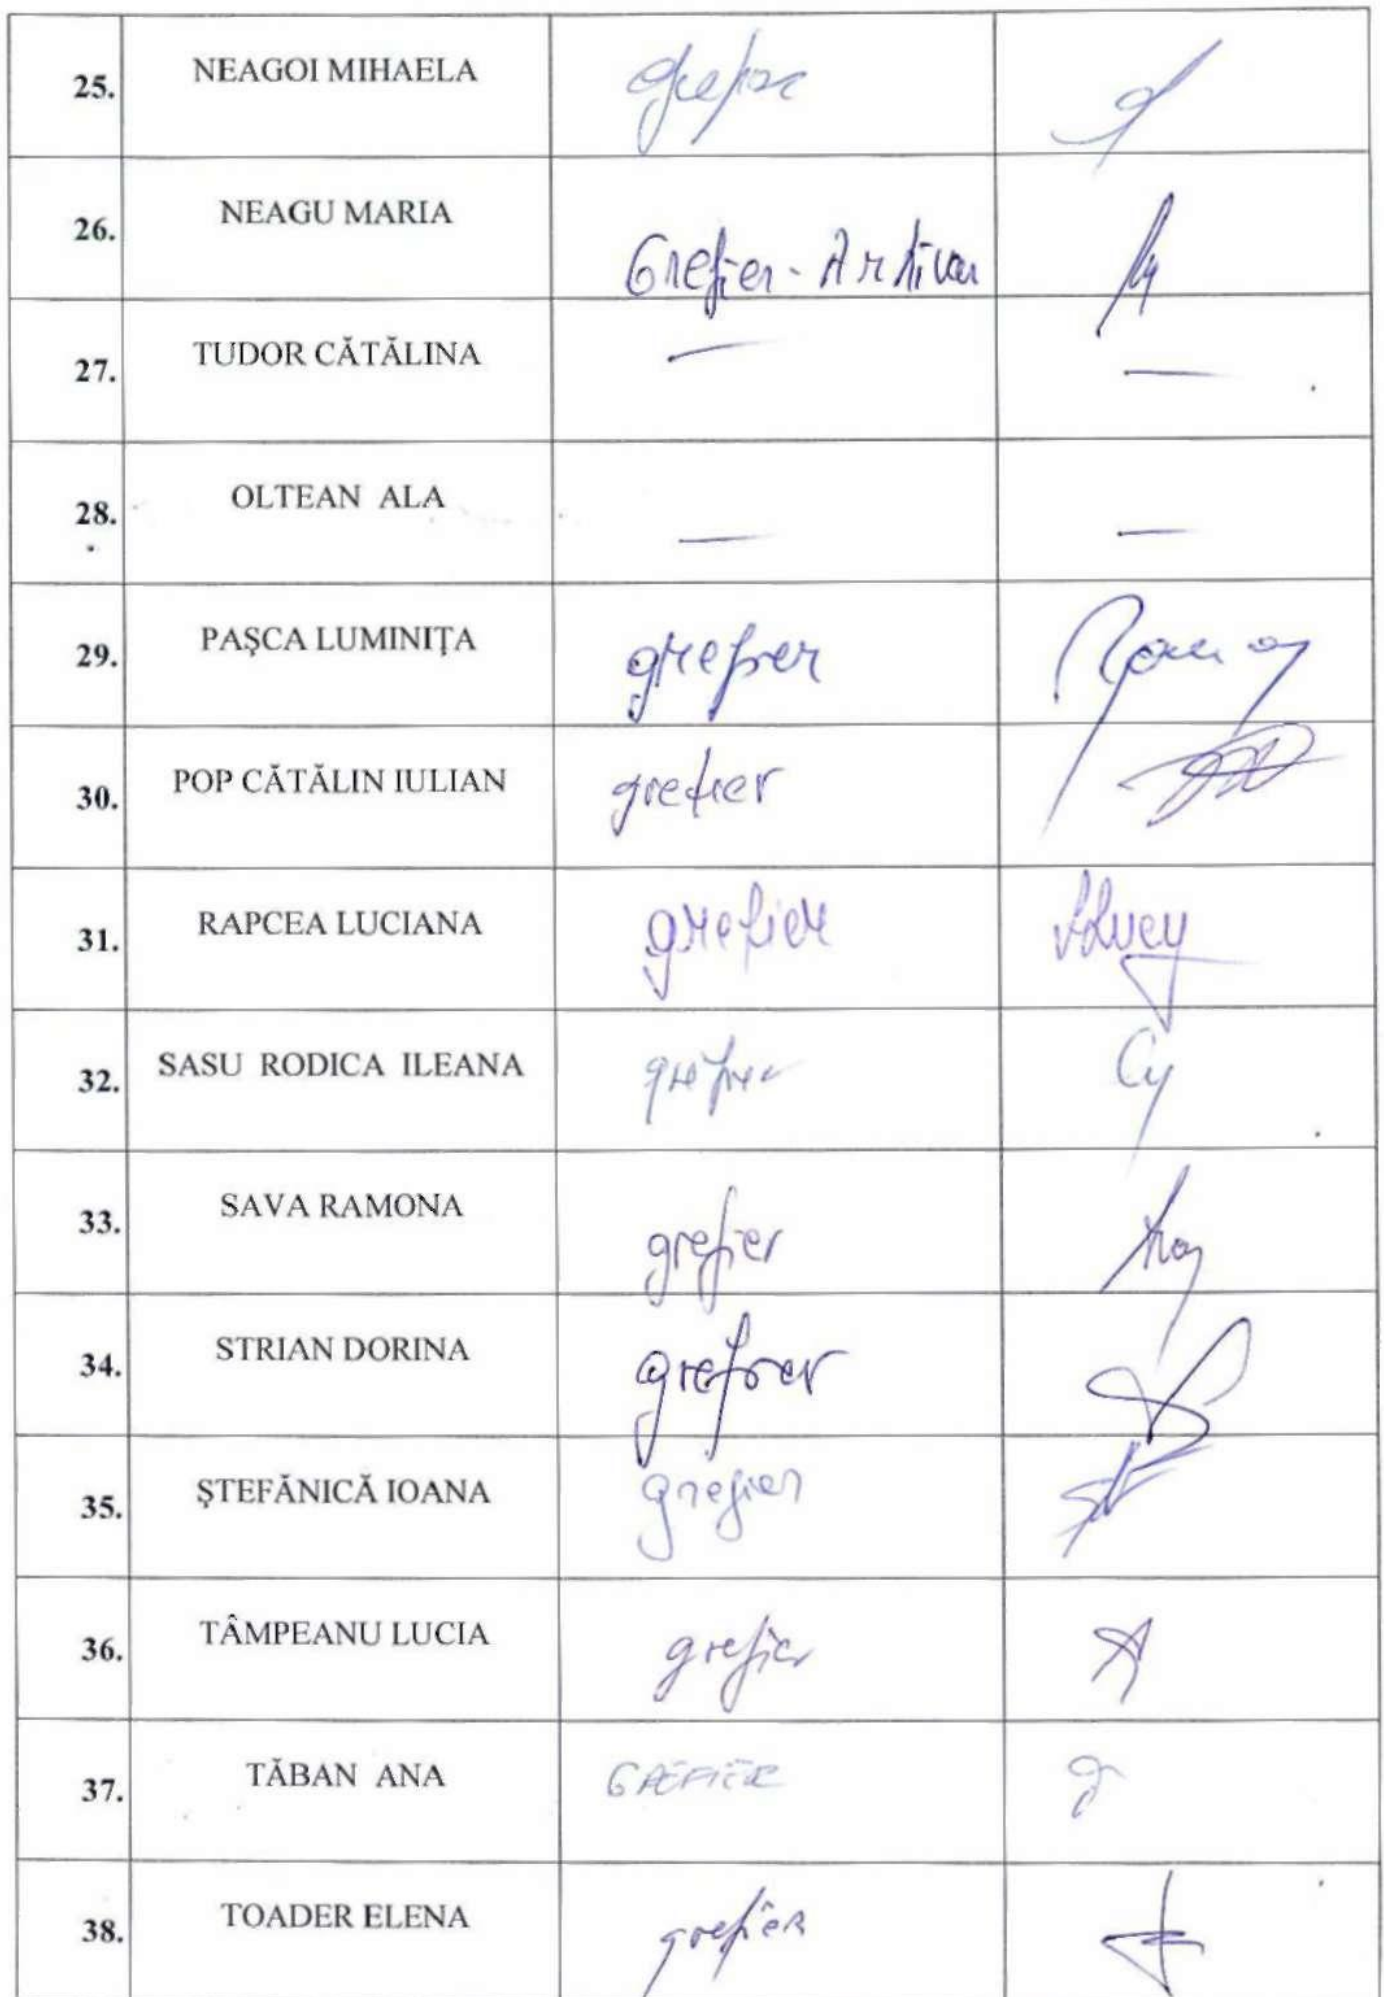 25. NEAGOI MIHAELA grefier
26. NEAGU MARIA Grefier - Arhivar
27. TUDOR CĂTĂLINA — —
28. OLTEAN ALA — —
29. PAŞCA LUMINIŢA grefier
30. POP CĂTĂLIN IULIAN grefier
31. RAPCEA LUCIANA grefier
32. SASU RODICA ILEANA grefier
33. SAVA RAMONA grefier
34. STRIAN DORINA grefier
35. ŞTEFĂNICĂ IOANA grefier
36. TÂMPEANU LUCIA grefier
37. TĂBAN ANA GREFIER
38. TOADER ELENA grefier